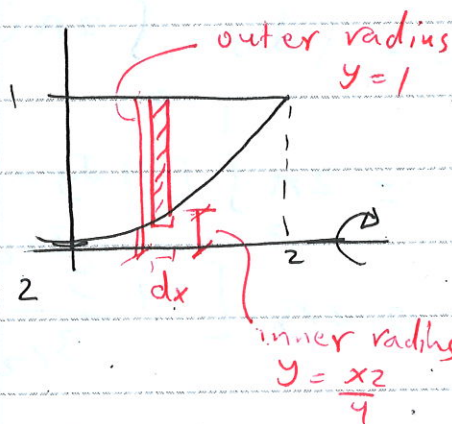 outer radius
y = 1
1
2
2
dx
inner radius
y = x2
4